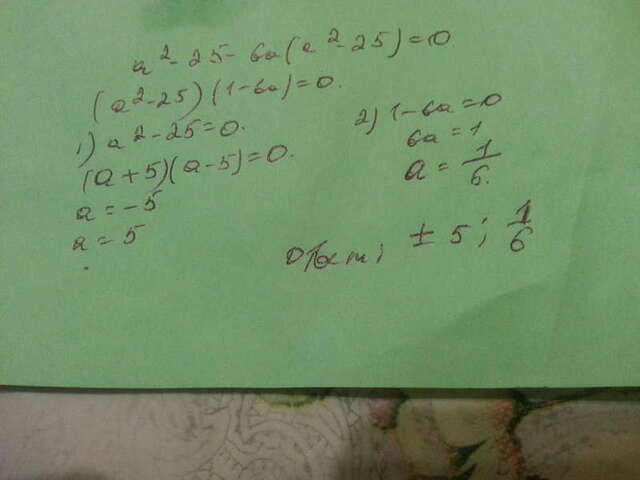 a² - 25 - 6a(a² - 25) = 0
(a² - 25)(1 - 6a) = 0.
1) a² - 25 = 0.
(a + 5)(a - 5) = 0.
a = -5
a = 5
2) 1 - 6a = 0
6a = 1
a = 1/6.
Ответ: ± 5; 1/6